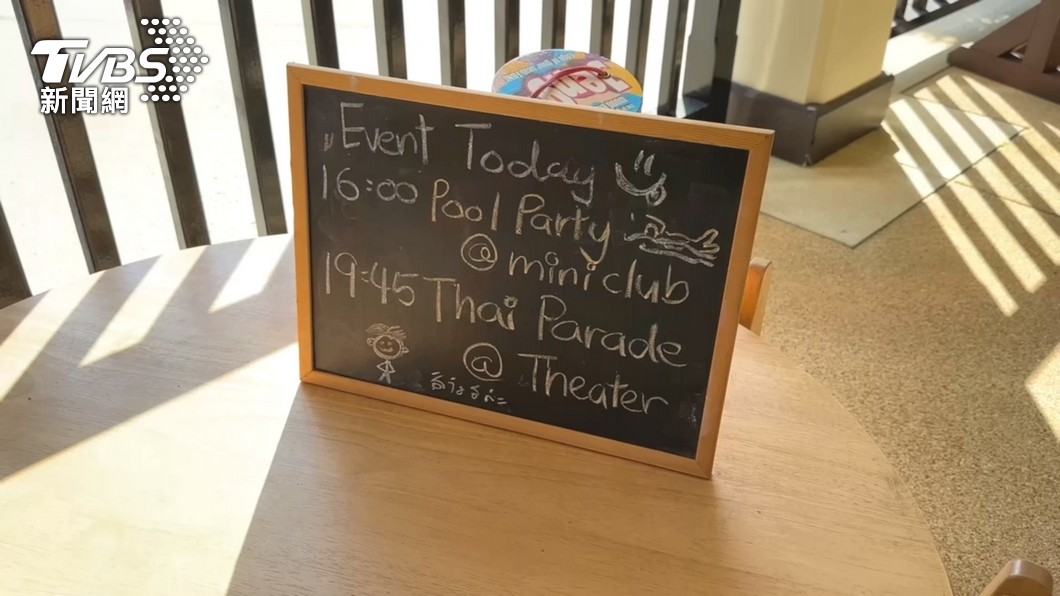 TVBS
新聞網
Event Today
16:00 Pool Party
@ miniclub
19:45 Thai Parade
@ Theater